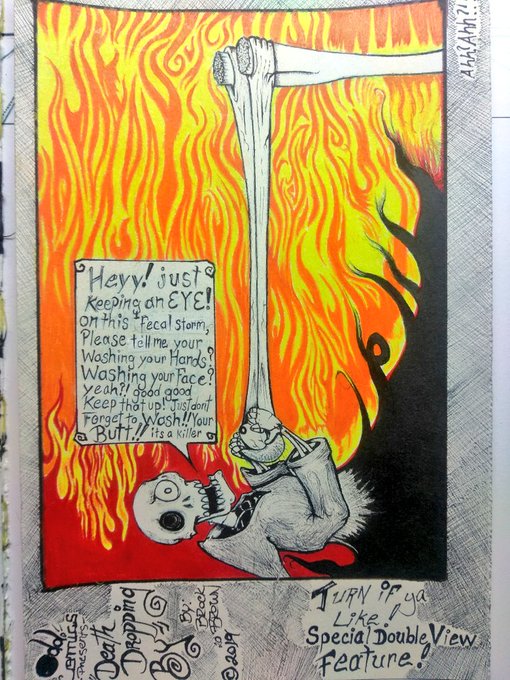 Ahh?Ahh?!!
Heyy! just
Keeping an EYE!
on this "Fecal storm,
Please tell me your
Washing your Hands?
Washing your Face?
yeah?! good good
Keep that up! Just dont
Forget to Wash!! Your
Butt!!! its a killer
Odd
Comics
Presents
"Death
Dropping
By"
By:
Brock
Brown
©2019
Turn if ya
Like!
Special Double View
Feature!